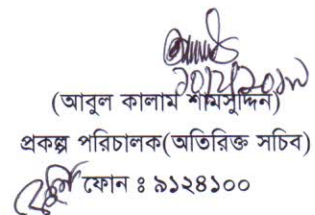 (আবুল কালাম শামসুদ্দিন)
প্রকল্প পরিচালক(অতিরিক্ত সচিব)
ফোন ঃ ৯১২৪১০০